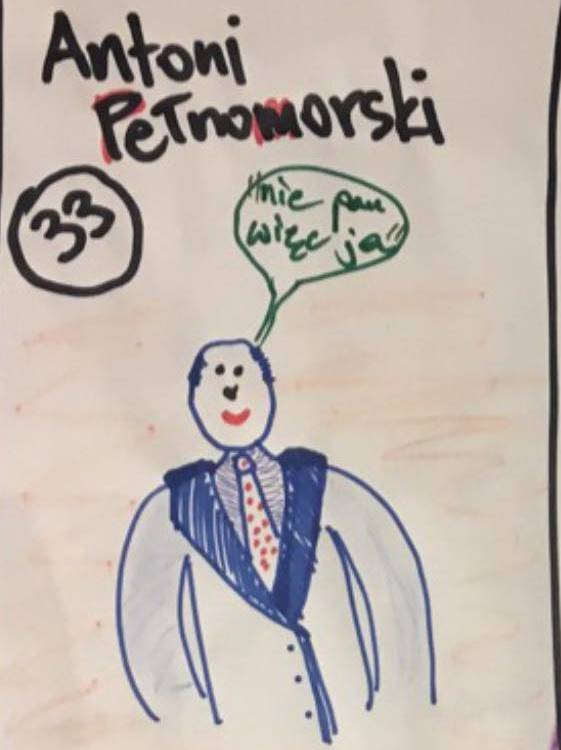 Antoni
Pełnomorski
33
"nie pan
więc ja"